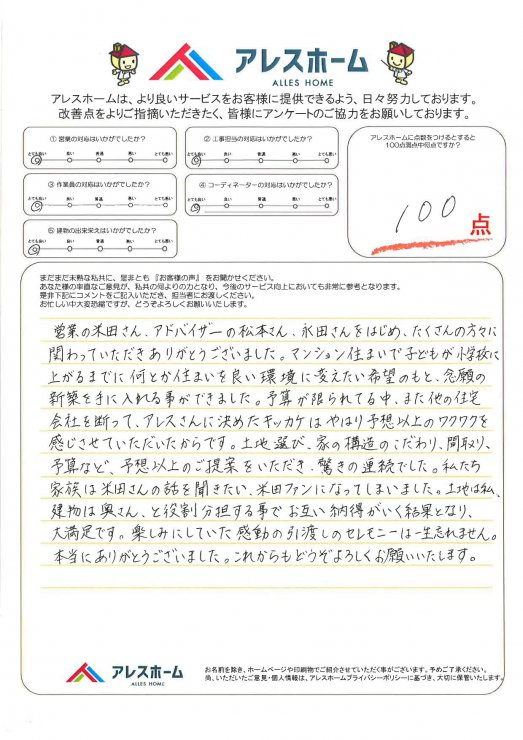 アレスホーム
ALLES HOME
アレスホームは、より良いサービスをお客様に提供できるよう、日々努力しております。
改善点をよりご指摘いただきたく、皆様にアンケートのご協力をお願いしております。
① 営業の対応はいかがでしたか?
とても良い 良い 普通 悪い とても悪い
② 工事担当の対応はいかがでしたか?
とても良い 良い 普通 悪い とても悪い
③ 作業員の対応はいかがでしたか?
とても良い 良い 普通 悪い とても悪い
④ コーディネーターの対応はいかがでしたか?
とても良い 良い 普通 悪い とても悪い
⑤ 建物の出来栄えはいかがでしたか?
とても良い 良い 普通 悪い とても悪い
アレスホームに点数をつけるとすると
100点満点中何点ですか?
100点
まだまだ未熟な私共に、是非とも『お客様の声』をお聞かせください。
あなた様の率直なご意見が、私共の何よりの力となり、今後のサービス向上においても非常に参考となります。
是非下記にコメントをご記入いただき、担当者にお渡しください。
お忙しい中大変恐縮ですが、どうぞよろしくお願いいたします。
営業の米田さん、アドバイザーの松本さん、永田さんをはじめ、たくさんの方々に
関わっていただきありがとうございました。マンション住まいで子どもが小学校に
上がるまでに何とか住まいを良い環境に変えたい希望のもと、念願の
新築を手に入れる事ができました。予算が限られてる中、また他の住宅
会社を断って、アレスさんに決めたキッカケはやはり予想以上のワクワクを
感じさせていただいたからです。土地選び、家の構造のこだわり、間取り、
予算など、予想以上のご提案をいただき、驚きの連続でした。私たち
家族は米田さんの話を聞きたい、米田ファンになってしまいました。土地は私、
建物は奥さん、と役割分担する事でお互い納得がいく結果となり、
大満足です。楽しみにしていた感動の引渡しのセレモニーは一生忘れません。
本当にありがとうございました。これからもどうぞよろしくお願いいたします。
アレスホーム
ALLES HOME
お名前を除き、ホームページや印刷物でご紹介させていただく事がございます。予めご了承ください。
尚、いただいたご意見・個人情報は、アレスホームプライバシーポリシーに基づき、大切に保管いたします。